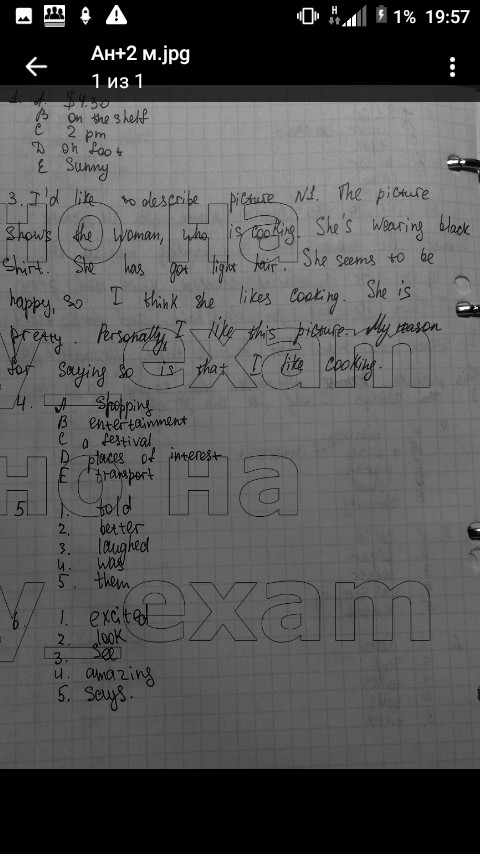 1% 19:57
Ан+2 м.jpg
1 из 1
1. A. $4.30
B on the shelf
C 2 pm
D on foot
E Sunny
3. I'd like to describe picture N1. The picture
shows the woman, who is cooking. She's wearing black
shirt. She has got light hair. She seems to be
happy, so I think she likes cooking. She is
pretty. Personally, I like this picture. My reason
for saying so is that I like cooking.
4. A Shopping
B entertainment
C a festival
D places of interest
E transport
5 1. told
2. better
3. laughed
4. was
5. them
6. 1. excited
2. look
3. See
4. amazing
5. says.
но на
у exam
но на
у exam